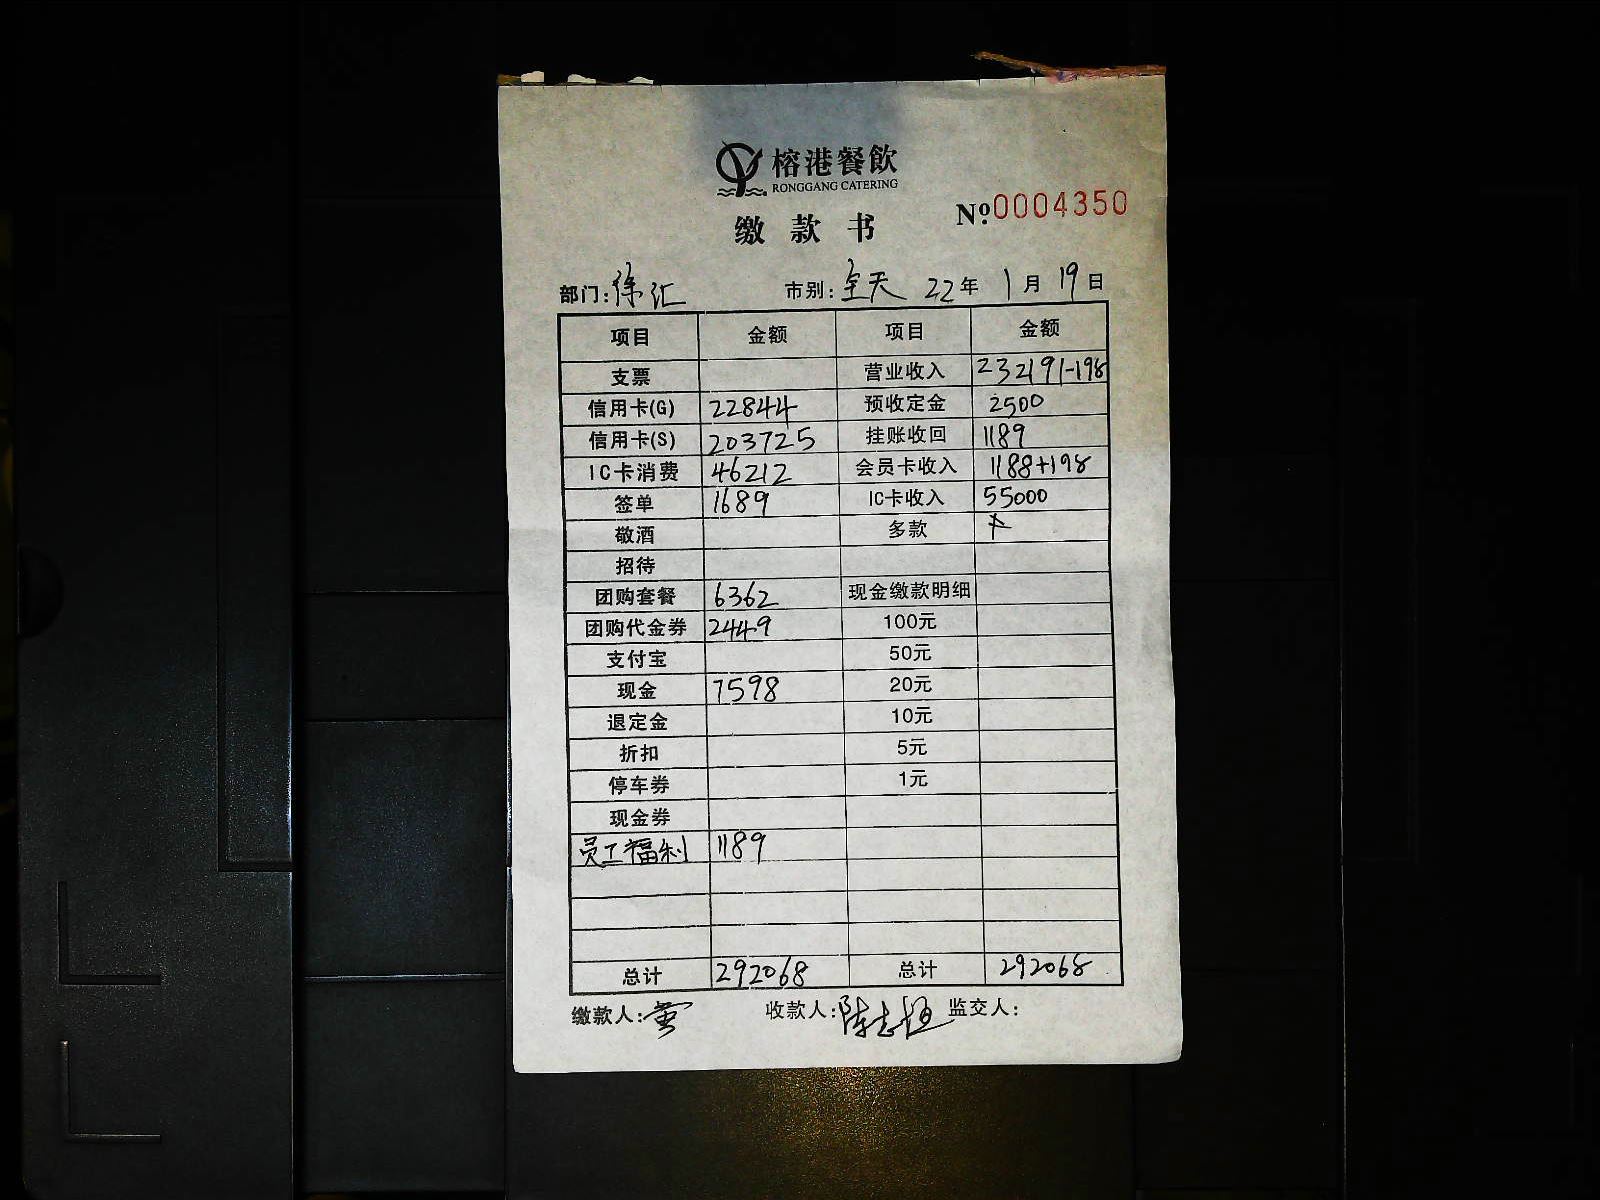 榕港餐飲
RONGGANG CATERING
缴款书 №0004350
部门:徐汇 市别:全天 22年1月19日
项目 金额 项目 金额
支票 营业收入 232191-198
信用卡(G) 22844 预收定金 2500
信用卡(S) 203725 挂账收回 1189
IC卡消费 46212 会员卡收入 1188+198
签单 1689 IC卡收入 55000
敬酒 多款
招待
团购套餐 6362 现金缴款明细
团购代金券 2449 100元
支付宝 50元
现金 7598 20元
退定金 10元
折扣 5元
停车券 1元
现金券
员工福利 1189
总计 292068 总计 292068
缴款人: 收款人:陈志恒 监交人: